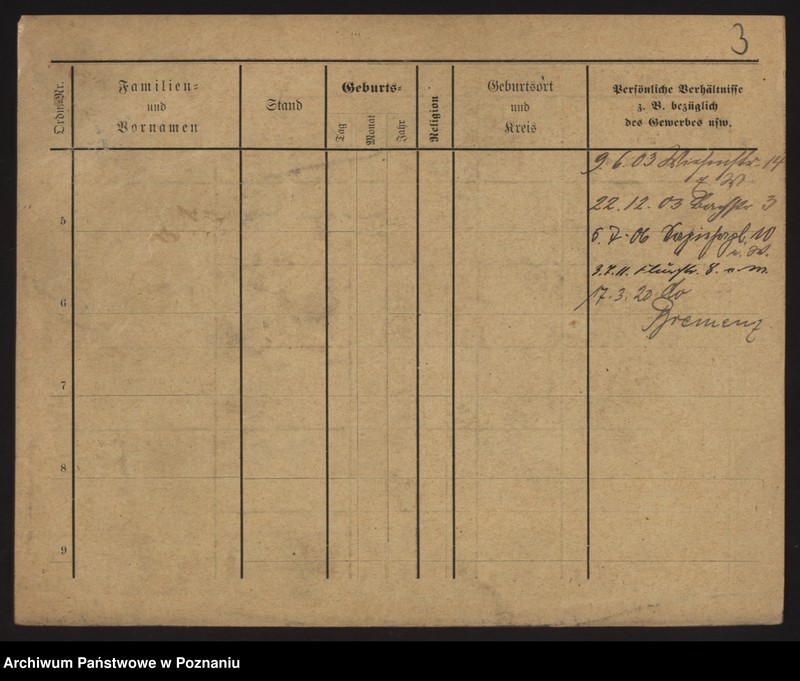 3
Ordn.-Nr.
Familien-
und
Vornamen
Stand
Geburts-
Tag
Monat
Jahr
Religion
Geburtsort
und
Kreis
Persönliche Verhältnisse
z. B. bezüglich
des Gewerbes usw.
9. 6. 03 Wiesenstr. 14
22. 12. 03 Bachstr 3
5
5. 7. 06 10
8. u. W.
6
17. 3. 20
Bremen
7
8
9
Archiwum Państwowe w Poznaniu